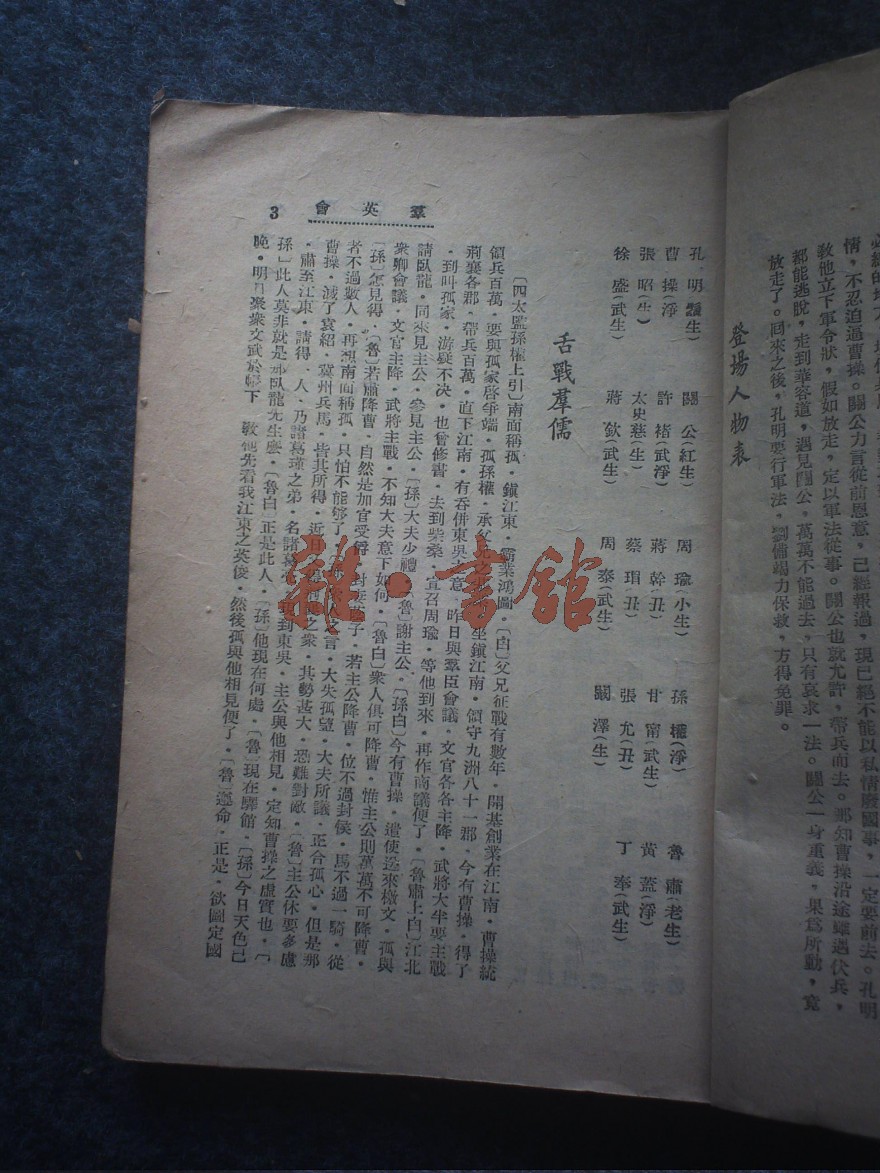 情，不忍迫逼曹操。關公力言從前恩意，已經報過，現已絕不能以私情廢國事，一定要前去。孔明
教他立下軍令狀，假如放走，定以軍法從事。關公也就允許，帶兵而去。那知曹操沿途雖遇伏兵，
都能逃脫，走到華容道，遇見關公，萬萬不能過去，只有哀求一法。關公一身重義，果為所動，竟
放走了。回來之後，孔明要行軍法，劉備竭力保救，方得免罪。
登場人物表
孔 明 生） 關 公（紅生） 周 瑜（小生） 孫 權（淨） 魯 肅（老生）
曹 操（淨） 許 褚（武淨） 蔣 幹（丑） 甘 甯（武生） 黃 蓋（淨）
張 昭（生） 太史慈（生） 蔡 瑁（丑） 張 允（丑） 丁 奉（武生）
徐 盛（武生） 蔣 欽（武生） 周 泰（武生） 闞 澤（生）
舌戰羣儒
〔四太監孫權上引〕南面稱孤．鎮江東．霸業鴻圖．〔白〕父兄征戰有數年．開基創業在江南．曹操統
領兵百萬．要與孤家啓爭端．孤孫權．承父兄之 坐鎮江南．領守九洲八十一郡．今有曹操．得了
荊襄各郡．帶兵百萬．直下江南．有吞併東吳之意．昨日與羣臣會議．文官各各主降．武將大半要主戰
．到叫孤家．游疑不決．也曾修書．去到柴桑．宣召周瑜．等他到來．再作商議便了．〔魯肅上白〕江北
請臥龍．同來見主公．參見主公．〔孫〕大夫少禮．〔魯〕謝主公．〔孫白〕今有曹操．遣使送來檄文．孤與
衆卿會議．文官主降．武將主戰．不知大夫意下如何．〔魯白〕衆人俱可降曹．惟主公則萬萬不可降曹．
〔孫〕怎見得．〔魯〕若肅降曹．自然是加官受爵．封妻 子．若主公降曹．位不過封侯．馬不過一騎．從
者不過數人．再想南面稱孤．只怕不能够了． 之言．大失孤望．大夫所議．正合孤心．但是那
曹操．滅了袁紹．冀州兵馬．皆其所得．近日 之衆．其勢甚大．恐難對敵．〔魯〕主公休要多慮
．肅至江東．請得一人．乃諸葛瑾之弟．名諸葛 到東吳．主公與他相見．定知曹操之虛實也．〔
孫〕此人莫非就是那臥龍先生麽．〔魯白〕正是此人．〔孫〕他現在何處．〔魯〕現在 館．〔孫〕今日天色已
晚．明日聚衆文武於帳下 教他先看我江東之英俊．然後孤與他相見便了．〔魯〕遵命．正是．欲圖定國
羣英會
3
雜·書館